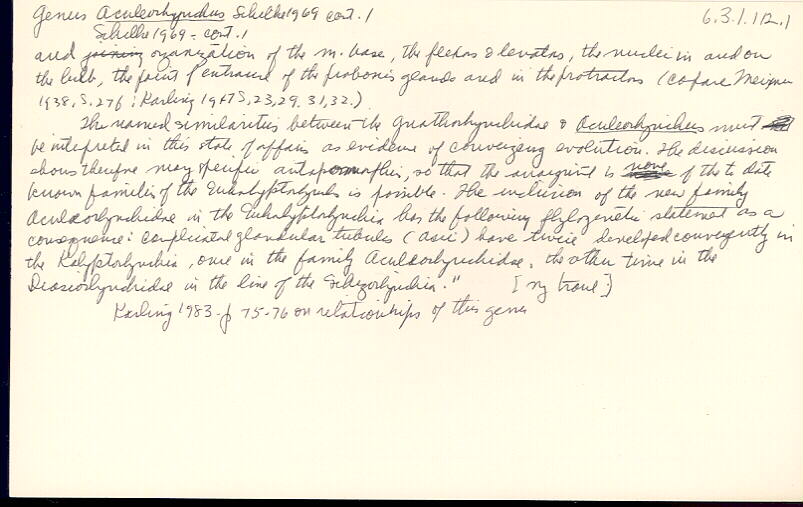 Genus Aculeorhynchus Schilke 1969 cont. 1
6.3.1.112.1
Schilke 1969 - cont. 1
and joining organization of the m. base, the flexors & levators, the nuclei in and on
the bulb, the point of entrance of the proboscis glands and in the protractors (copare Meixner
1938, S. 276; Karling 1947 S, 23, 29. 31, 32.)
The named similarities between the Gnathorhynchidae & Aculeorhynchus must
be intepreted in this state of affairs as evidence of converging evolution. The discussion
shows therefore many specific autapomorphies, so that the assignment is none of the to date
known families of the Eukalyptorhynchs is possible. The inclusion of the new family
Aculeorhynchidae in the Eukalyptorhynchia has the following phylogenetic statement as a
consequence: conpluctal glandular tubules (Asci) have twice developed convergently in
the Kalyptorhynchia, once in the family Aculeorhynchidae, the other time in the
Diascorhynchidae in the line of the Schizorhynchia." [my transl.]
Karling 1983. p 75-76 on relationships of this genus